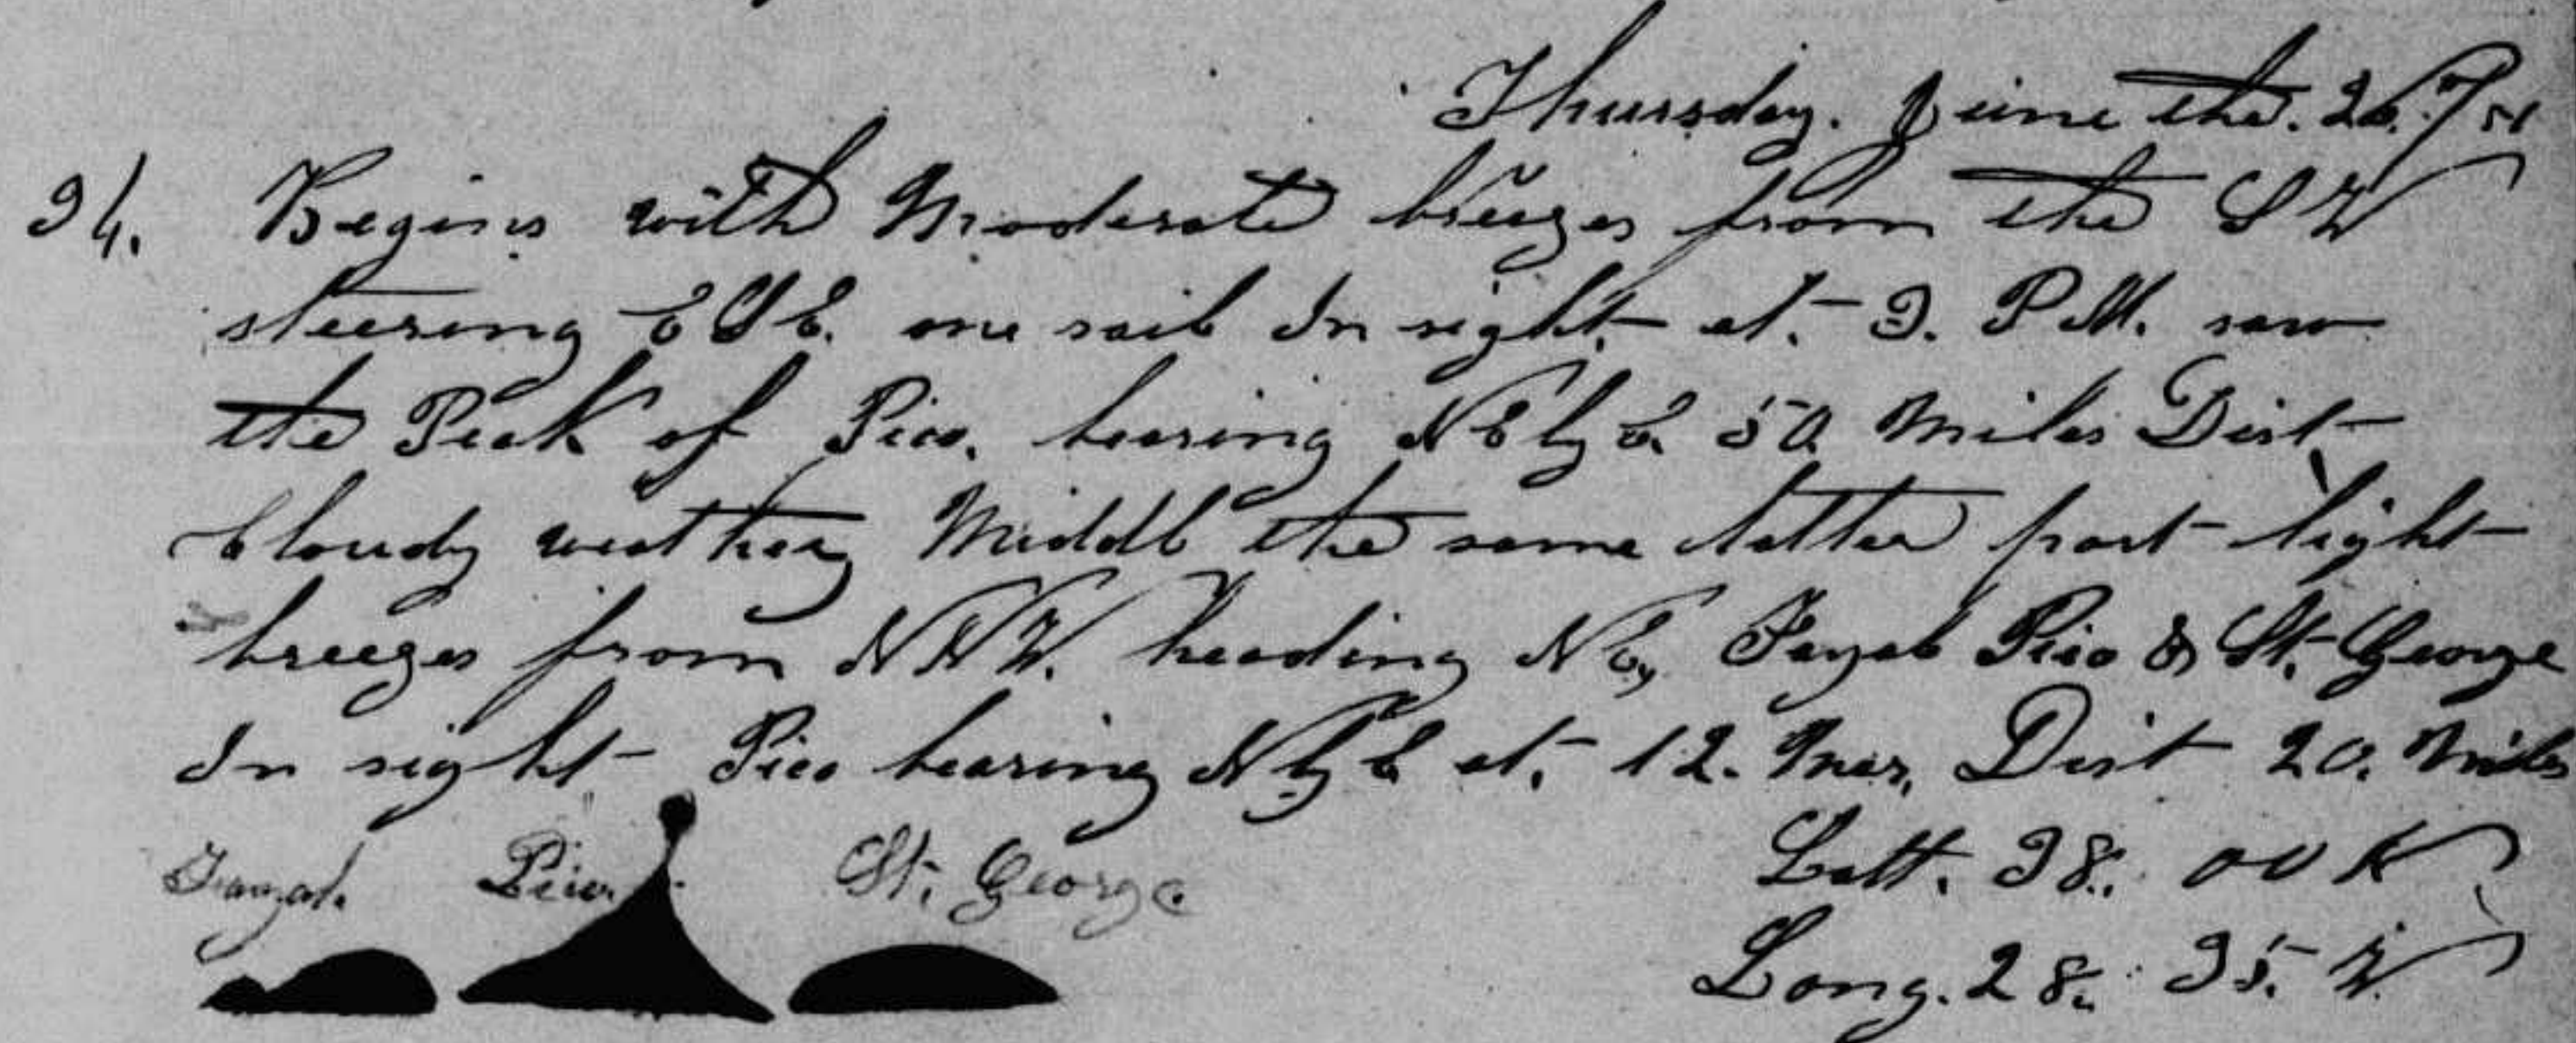 Thursday. June the. 26. /51
34. Begins with Moderate breezes from the SW
steering ESE. one sail In sight. at. 3. PM. saw
the Peak of Pico. bearing NE by E. 50 Miles Dist
Cloudy weather Middl the same latter part light
breezes from NNW. heading NE, Fayal Pico & St. George
In sight Pico bearing N by E at. 12. Mer, Dist 20. Miles
Fayal. Pico. St. George.
Latt. 38.. 00 N
Long. 28.. 35. W